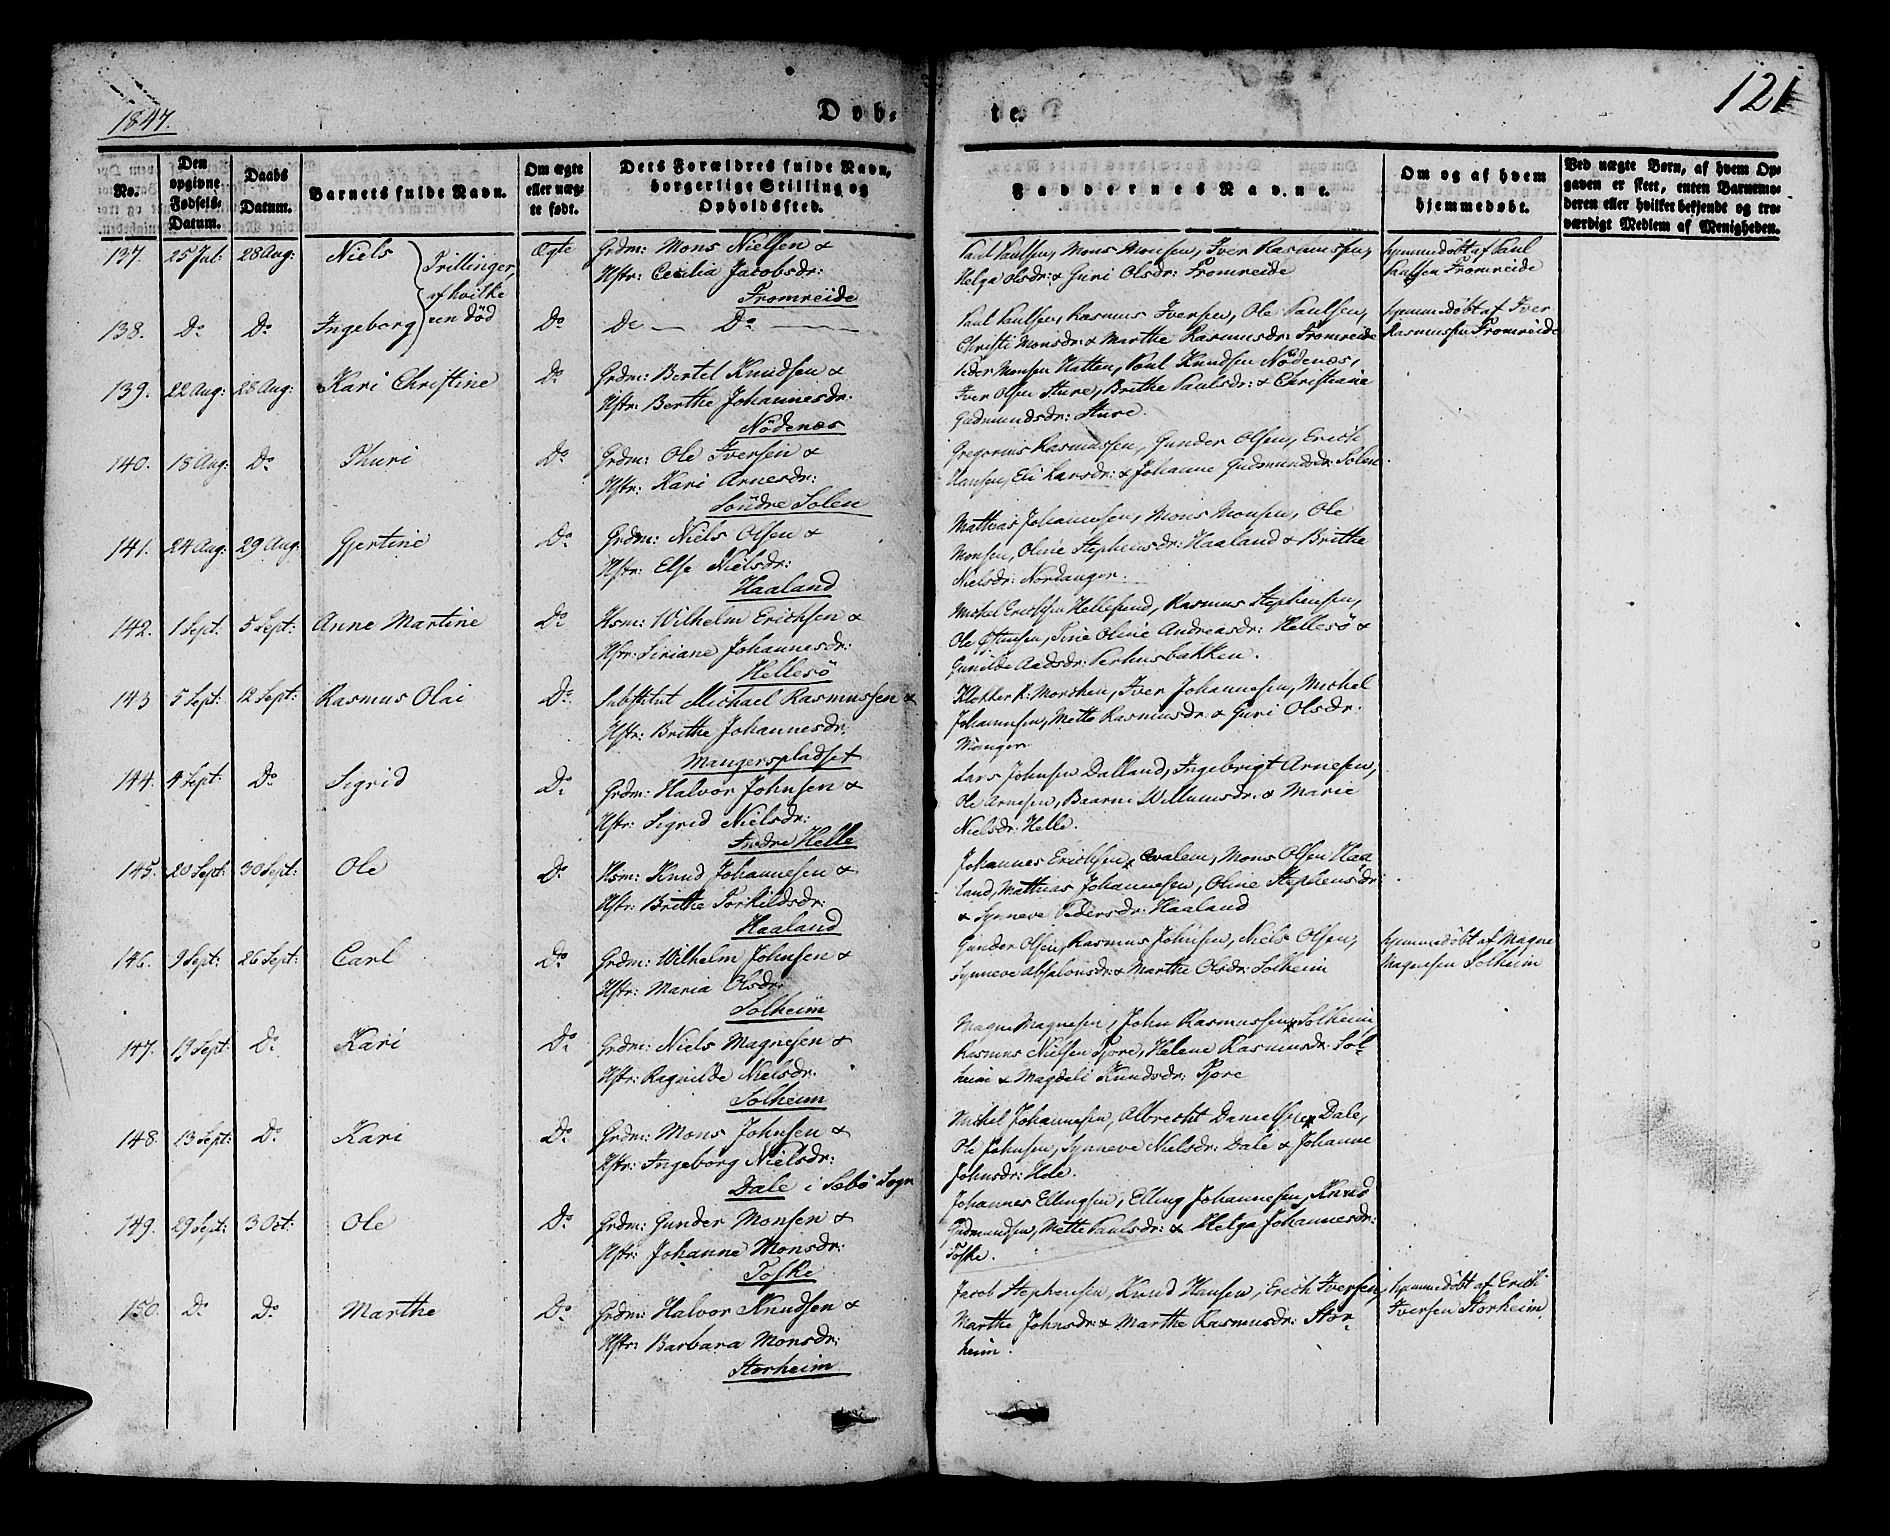 1847.
Døb-
te.
121
No.
Den opgivne Fødsels-Datum.
Daabs Datum.
Barnets fulde Navn.
Om ægte eller uægte født.
Dets Forældres fulde Navn, borgerlige Stilling og Opholdssted.
Faddernes Navne.
Om og af hvem hjemmedøbt.
Ved uægte Børn, af hvem Opgaven er skeet, enten Barnemoderen eller hvilket bekjendt og troværdigt Medlem af Menigheden.
137. 25 Jul: 28 Aug: Niels Ægte Grdm: Mons Nielsen &
Hstr: Cecilia Jacobsdr:
Fromreide
Trillinger,
af hvilke
een død
Paul Paulsen, Mons Monsen, Iver Rasmussen,
Helga Olsdr: & Guri Olsdr: Fromreide
hjemmedöbt af Paul
Paulsen Fromreide
138. Do Do Ingeborg Do Do — Do —
Paul Paulsen, Rasmus Iversen, Ole Paulsen,
Christi Monsdr: & Marthe Rasmusdr: Fromreide
hjemmedöbt af Iver
Rasmussen Fromreide
139. 22 Aug: 28 Aug: Kari Christine Do Grdm: Bertel Knudsen &
Hstr: Berthe Johannesdr:
Nödenæs
Peder Monsen Hatten, Paul Knudsen Nödenæs,
Iver Olsen Sture, Brithe Paulsdr: & Christiane
Gudmundsdr: Sture.
140. 18 Aug: Do Thuri Do Grdm: Ole Iversen &
Hstr: Kari Arnesdr:
Söndre Solen
Gregorius Rasmussen, Gunder Olsen, Erich
Hansen, Eli Larsdr: & Johanne Gudmundsdr: Solen
141. 24 Aug: 29 Aug: Gjertine Do Grdm: Niels Olsen &
Hstr: Else Nielsdr:
Haaland
Mathias Johannesen, Mons Monsen, Ole
Monsen, Oline Stephensdr: Haaland & Brithe
Nielsdr: Nordanger.
142. 1 Sept: 5 Sept: Anne Martine Do Hsm: Wilhelm Erichsen &
Hstr: Siriane Johannesdr:
Hellesö
Michel Erichsen Hellesund, Rasmus Stephensen,
Ole Oline Andreasdr: Hellesö &
Gunilde
143 5 Sept: 12 Sept: Rasmus Olai Do Substitut Michael Rasmussen &
Hstr: Brithe Johannesdr:
Mangerspladset
Klokker R: Iver Johannesen, Michel
Johannesen, Mette Rasmusdr: & Guri Olsdr:
Manger
144. 4 Sept: Do Sigrid Do Grdm: Halvor Johnsen &
Hstr: Sigrid Nielsdr:
Indre Helle
Lars Johnsen Dalland, Ingebrigt Arnesen,
Ole Arnesen, Baarni Willumsdr: & Marie
Nielsdr: Helle.
145. 20 Sept: 30 Sept: Ole Do Hsm: Knud Johannesen &
Hstr: Brithe Torkildsdr:
Haaland
Johannes Erichsen Mons Olsen Haa
land, Mathias Johannesen, Oline Stephensdr:
& Synneve Pedersdr: Haaland
146. 9 Sept: 26 Sept: Carl Do Grdm: Wilhelm Johnsen &
Hstr: Maria Olsdr:
Solheim
Gunder Olsen, Rasmus Johnsen, Niels Olsen,
Synneve Absalonsdr: & Marthe Olsdr: Solheim
hjemmedöbt af Magne
Magnesen Solheim
147. 19 Sept: Do Kari Do Grdm: Niels Magnesen &
Hstr: Ragnilde Nielsdr:
Solheim
Magne Magnesen, John Rasmussen Solheim
Rasmus Nielsen Tjore, Helene Rasmusdr: Sol-
heim & Magdeli Knudsdr: Tjore
148. 13 Sept: Do Kari Do Grdm: Mons Johnsen &
Hstr: Ingeborg Nielsdr:
Dale i Sebö Sogn
Michel Johannesen, Albrecht Danielsen Dale,
Ole Johnsen, Synneve Nielsdr: Dale & Johanne
Johnsdr: Hole.
149. 29 Sept: 3 Oct: Ole Do Grdm: Gunder Monsen &
Hstr: Johanne Monsdr:
Toske
Johannes Ellingsen, Elling Johannesen, Knud
Gudmundsen, Mette Paulsdr: & Helga Johannesdr:
Toske.
150. Do Do Marthe Do Grdm: Halvor Knudsen &
Hstr: Barbara Monsdr:
Storheim
Jacob Stephensen, Knud Hansen, Erich Iversen,
Marthe Johnsdr: & Marthe Rasmusdr: Stor-
heim.
hjemmedöbt af Erich
Iversen Storheim.